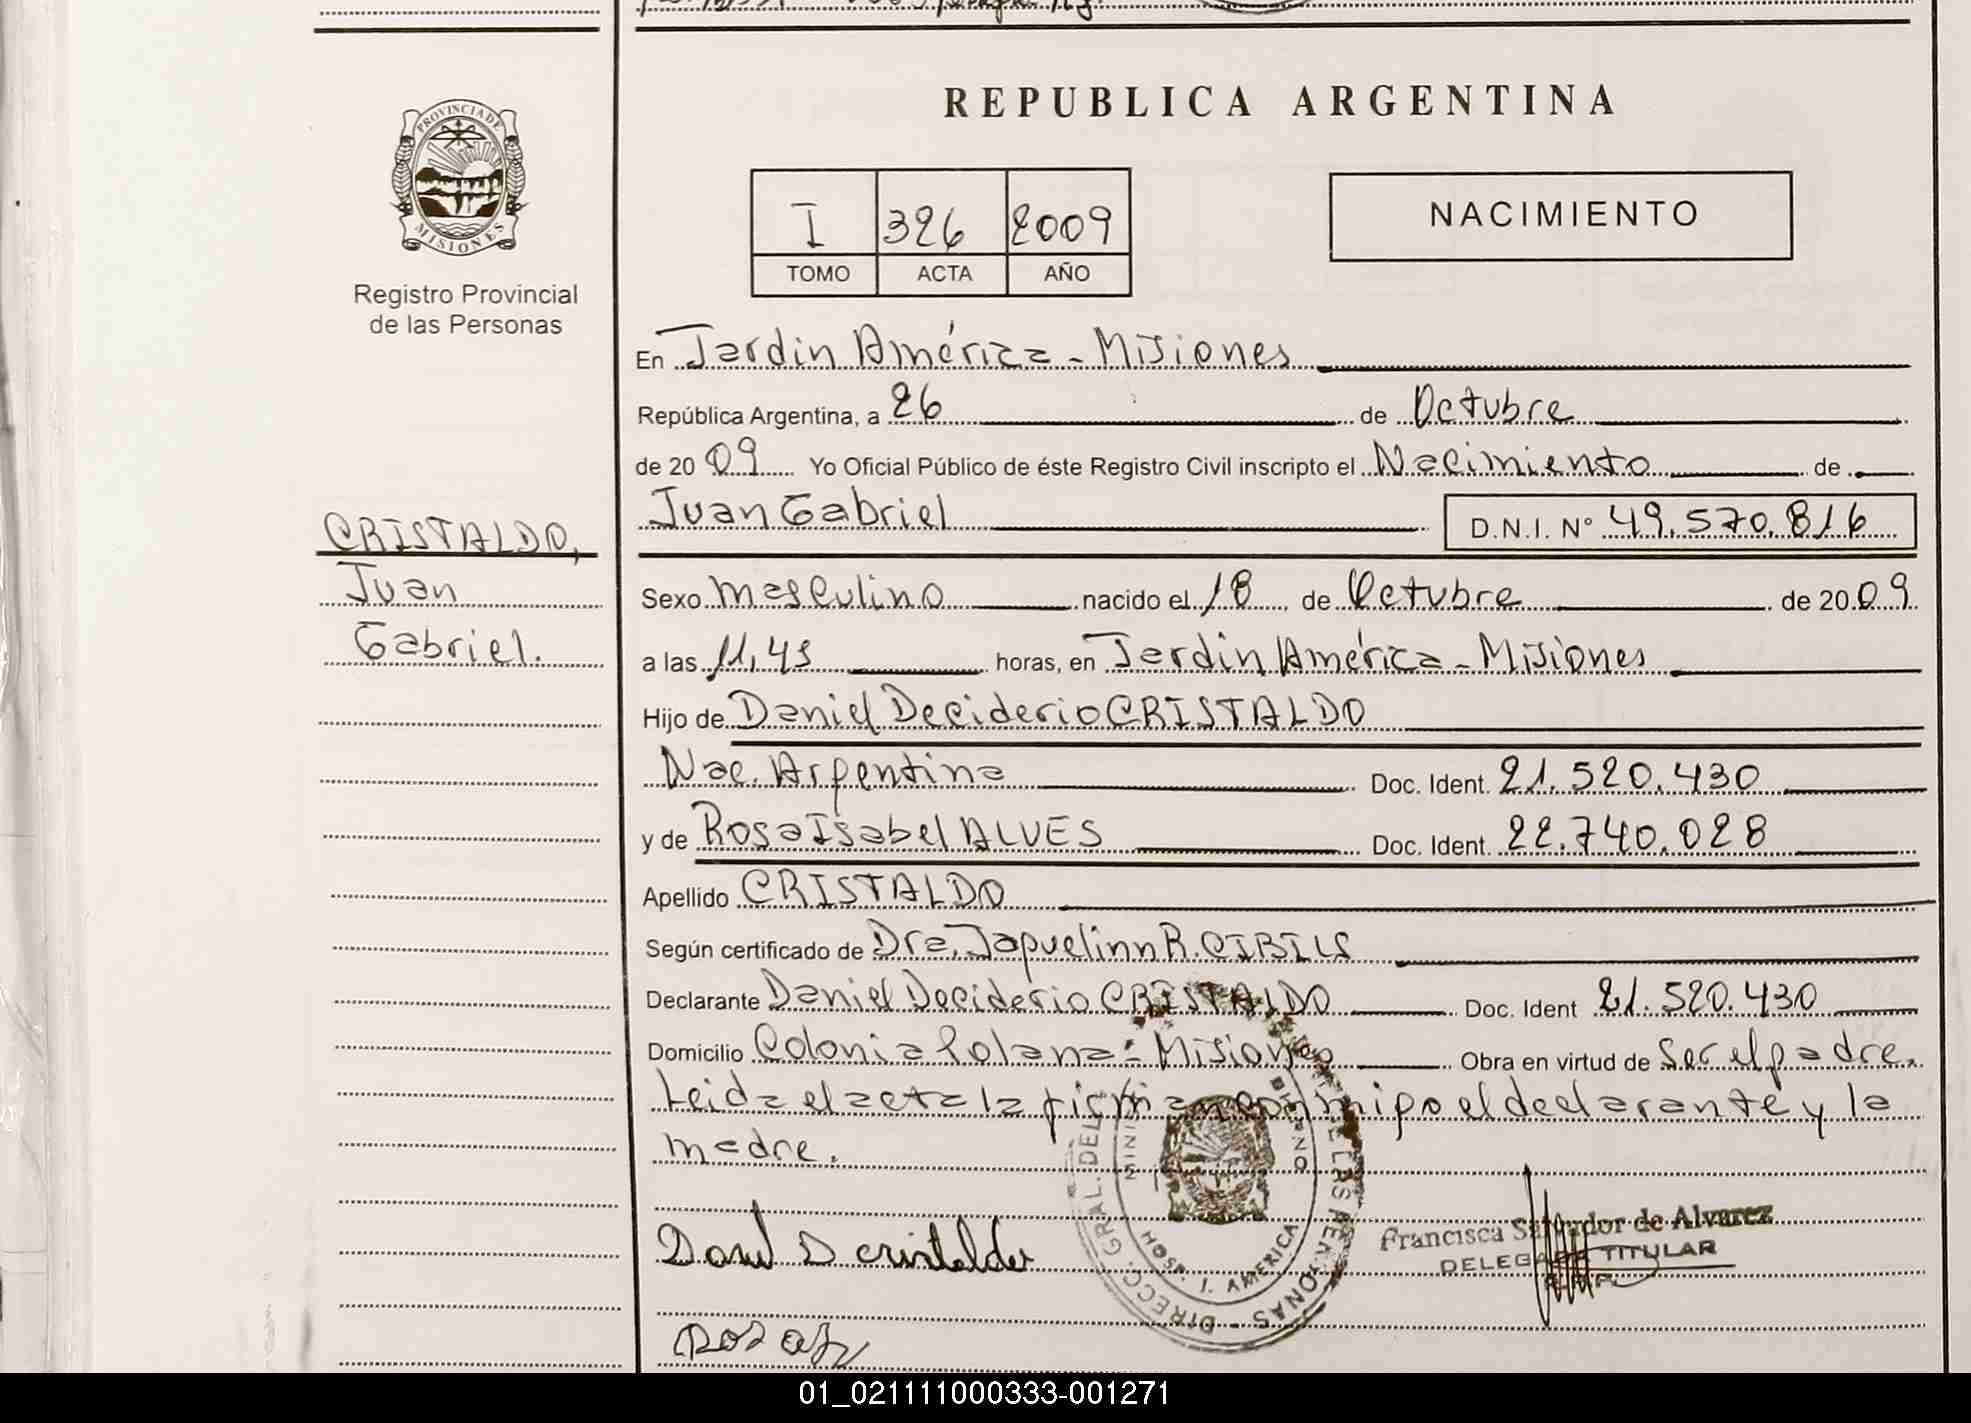 REPUBLICA ARGENTINA
PROVINCIA DE
MISIONES
Registro Provincial
de las Personas
I 326 2009
TOMO ACTA AÑO
NACIMIENTO
En Jardin América - Misiones
República Argentina, a 26 de Octubre
de 2009 Yo Oficial Público de éste Registro Civil inscripto el Nacimiento de
Juan Gabriel D.N.I. N° 49.570.816
CRISTALDO,
Juan
Gabriel.
Sexo Masculino nacido el 18 de Octubre de 2009
a las 11,45 horas, en Jardin América - Misiones
Hijo de Daniel Deciderio CRISTALDO
Nac. Argentina Doc. Ident. 21.520.430
y de Rosa Isabel ALVES Doc. Ident. 22.740.028
Apellido CRISTALDO
Según certificado de Dra. Jaquelinn R. CIBILS
Declarante Daniel Deciderio CRISTALDO Doc. Ident 21.520.430
Domicilio Colonia Polana - Misiones Obra en virtud de Ser el padre.
Leida el acta la firman conmigo el declarante y la
madre.
DIRECC. GRAL. DEL DE LAS PERSONAS -
HOSP. J. AMERICA
Francisca Salvador de Alvarez
DELEGADA TITULAR
R.P.P.
Daniel D cristaldo
01_021111000333-001271